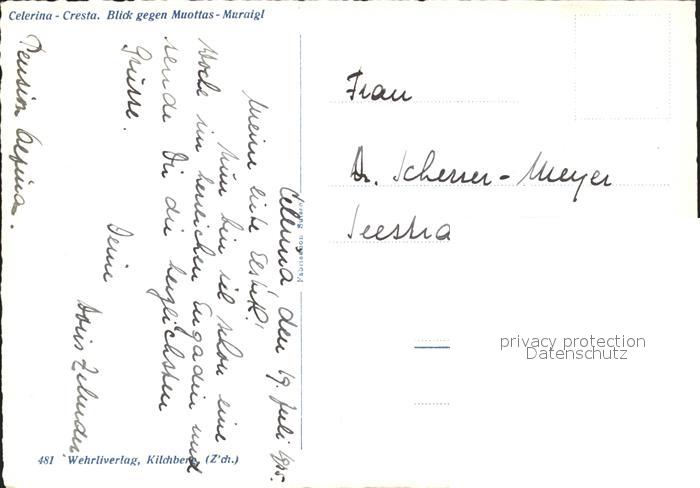 Celerina - Cresta. Blick gegen Muottas - Muraigl
Celerina den 19. Juli
Meine liebe
Nun bin ich schon eine
Woche im herrlichen Engadin und
sende Dir die herzlichsten
Grüsse.
Deine
Doris Zehnder
Pension Alpina.
481 Wehrliverlag, Kilchberg (Z'ch.)
Frau
Dr. Scherrer - Meyer
Seestra
privacy protection
Datenschutz